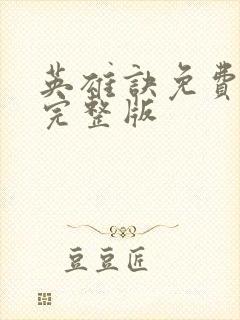 英雄訣免費
完整版
豆豆匠